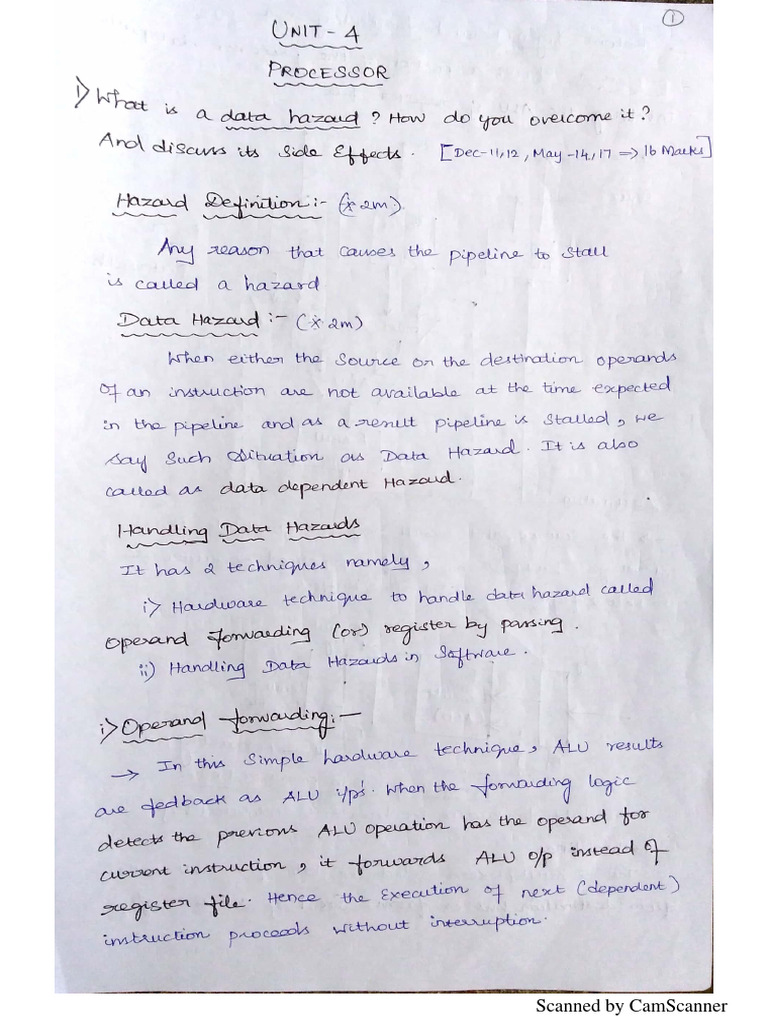 1
UNIT - 4
PROCESSOR
1) What is a data hazard ? How do you overcome it ?
And discuss its side Effects. [Dec-11,12, May-14,17 => 16 Marks]
Hazard Definition :- (* 2m).
Any reason that causes the pipeline to stall
is called a hazard
Data Hazard :- (* 2m)
When either the source or the destination operands
of an instruction are not available at the time expected
in the pipeline and as a result pipeline is stalled, we
say such situation as Data Hazard. It is also
called as data dependent Hazard.
Handling Data Hazards
It has 2 techniques namely,
i) Hardware technique to handle data hazard called
Operand Forwarding (or) register by passing.
ii) Handling Data Hazards in Software.
i) Operand forwarding :-
→ In this simple hardware technique, ALU results
are fedback as ALU i/ps. When the forwarding logic
detects the previous ALU operation has the operand for
current instruction, it forwards ALU o/p instead of
register file. Hence the Execution of next (dependent)
instruction proceeds without interruption.
Scanned by CamScanner